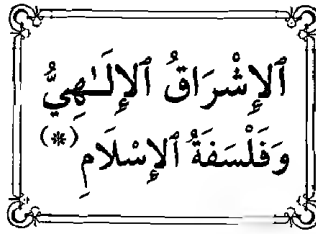 ٱلإِشْرَاقُ ٱلإِلَـٰهِيُّ
وَفَلْسَفَةُ ٱلإِسْلَامِ (*)